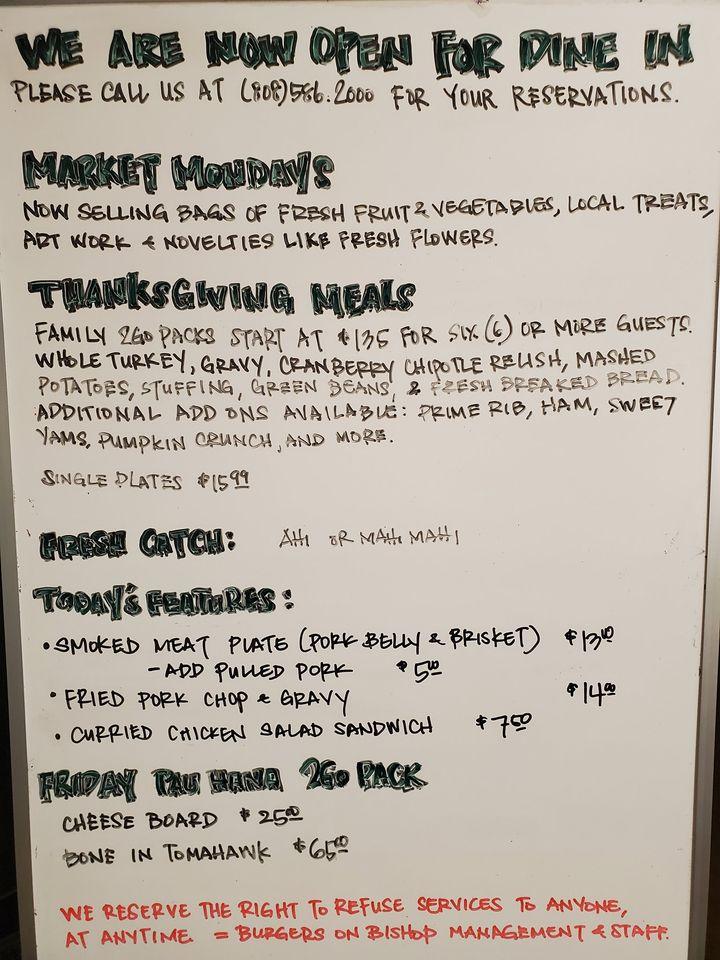 WE ARE NOW OPEN FOR DINE IN
PLEASE CALL US AT (808)586.2000 FOR YOUR RESERVATIONS.
MARKET MONDAYS
NOW SELLING BAGS OF FRESH FRUIT & VEGETABLES, LOCAL TREATS,
ART WORK & NOVELTIES LIKE FRESH FLOWERS.
THANKSGIVING MEALS
FAMILY 2GO PACKS START AT $135 FOR SIX (6) OR MORE GUESTS.
WHOLE TURKEY, GRAVY, CRANBERRY CHIPOTLE RELISH, MASHED
POTATOES, STUFFING, GREEN BEANS, & FRESH BREAKED BREAD.
ADDITIONAL ADD ONS AVAILABLE: PRIME RIB, HAM, SWEET
YAMS, PUMPKIN CRUNCH, AND MORE.
SINGLE PLATES $15.99
FRESH CATCH: AHI OR MAHI MAHI
TODAY'S FEATURES:
• SMOKED MEAT PLATE (PORK BELLY & BRISKET) $13.00
- ADD PULLED PORK $5.00
• FRIED PORK CHOP & GRAVY $14.00
• CURRIED CHICKEN SALAD SANDWICH $7.50
FRIDAY PAU HANA 2GO PACK
CHEESE BOARD $25.00
BONE IN TOMAHAWK $65.00
WE RESERVE THE RIGHT TO REFUSE SERVICES TO ANYONE,
AT ANYTIME. = BURGERS ON BISHOP MANAGEMENT & STAFF.